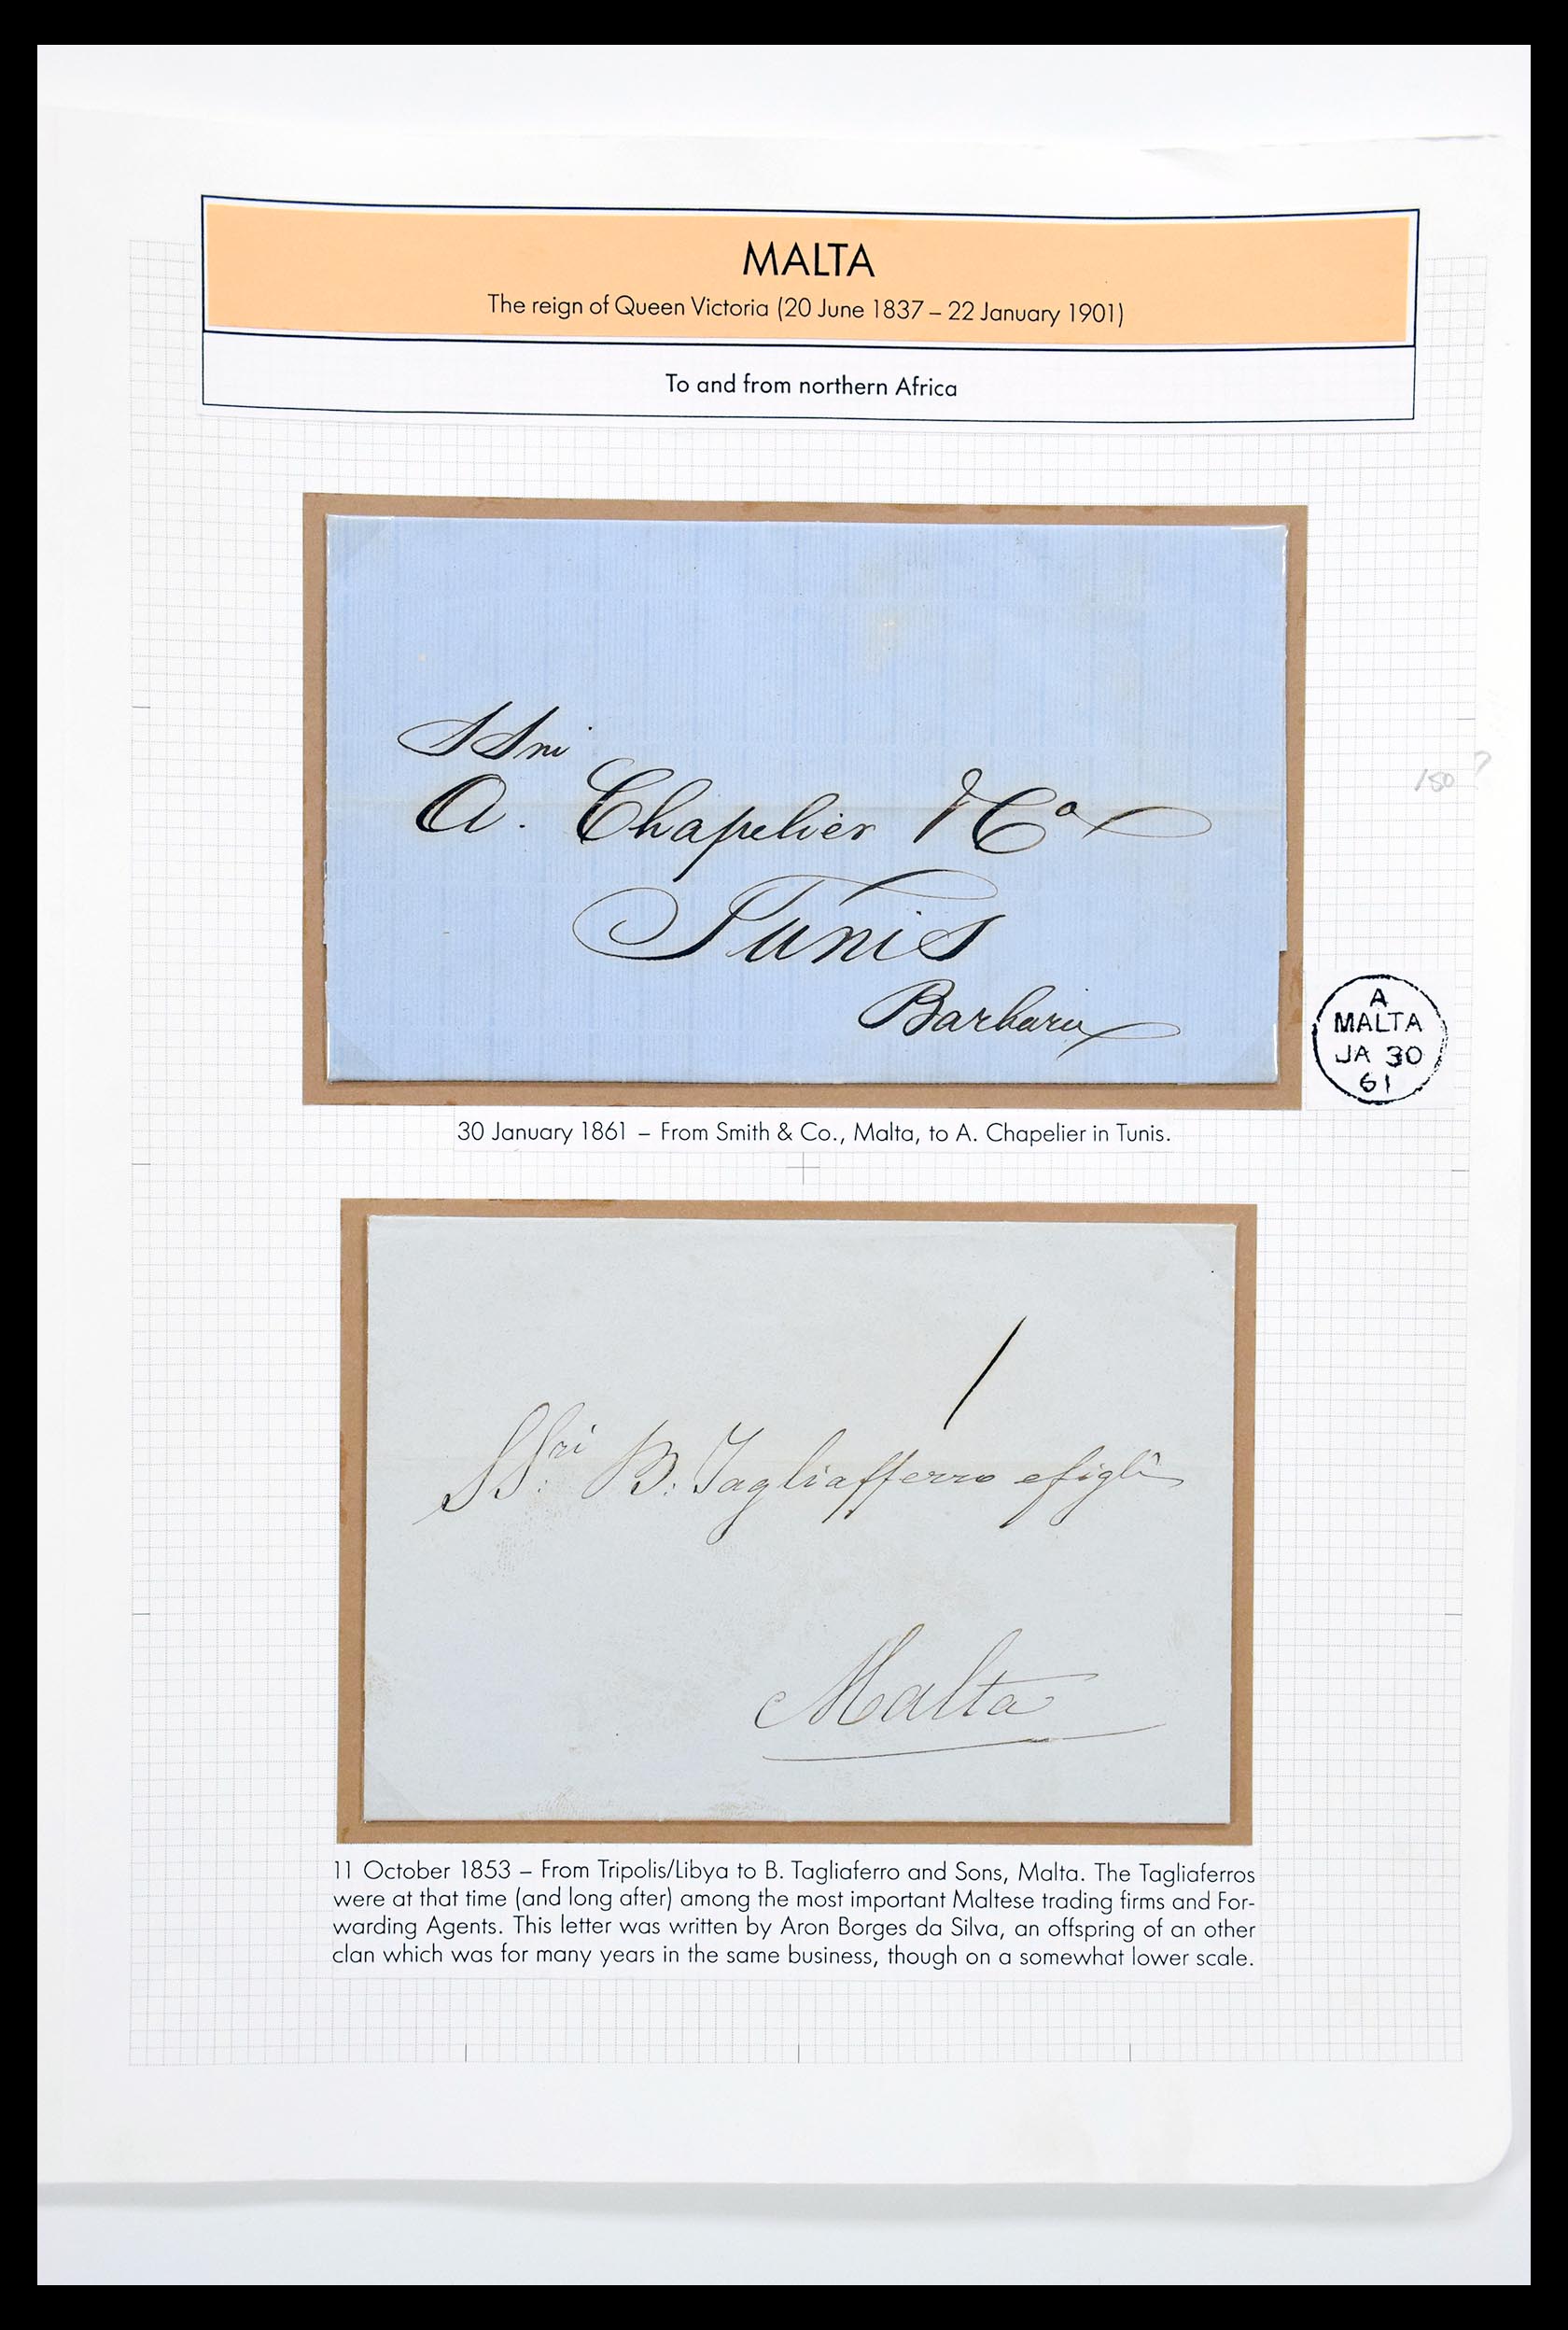 MALTA
The reign of Queen Victoria (20 June 1837 – 22 January 1901)
To and from northern Africa
SSri
A. Chapelier & Co
Tunis
Barbaria
150 ?
A
MALTA
JA 30
61
30 January 1861 – From Smith & Co., Malta, to A. Chapelier in Tunis.
1
SSri B: Tagliafferro e figli
Malta
11 October 1853 – From Tripolis/Libya to B. Tagliaferro and Sons, Malta. The Tagliaferros
were at that time (and long after) among the most important Maltese trading firms and For-
warding Agents. This letter was written by Aron Borges da Silva, an offspring of an other
clan which was for many years in the same business, though on a somewhat lower scale.